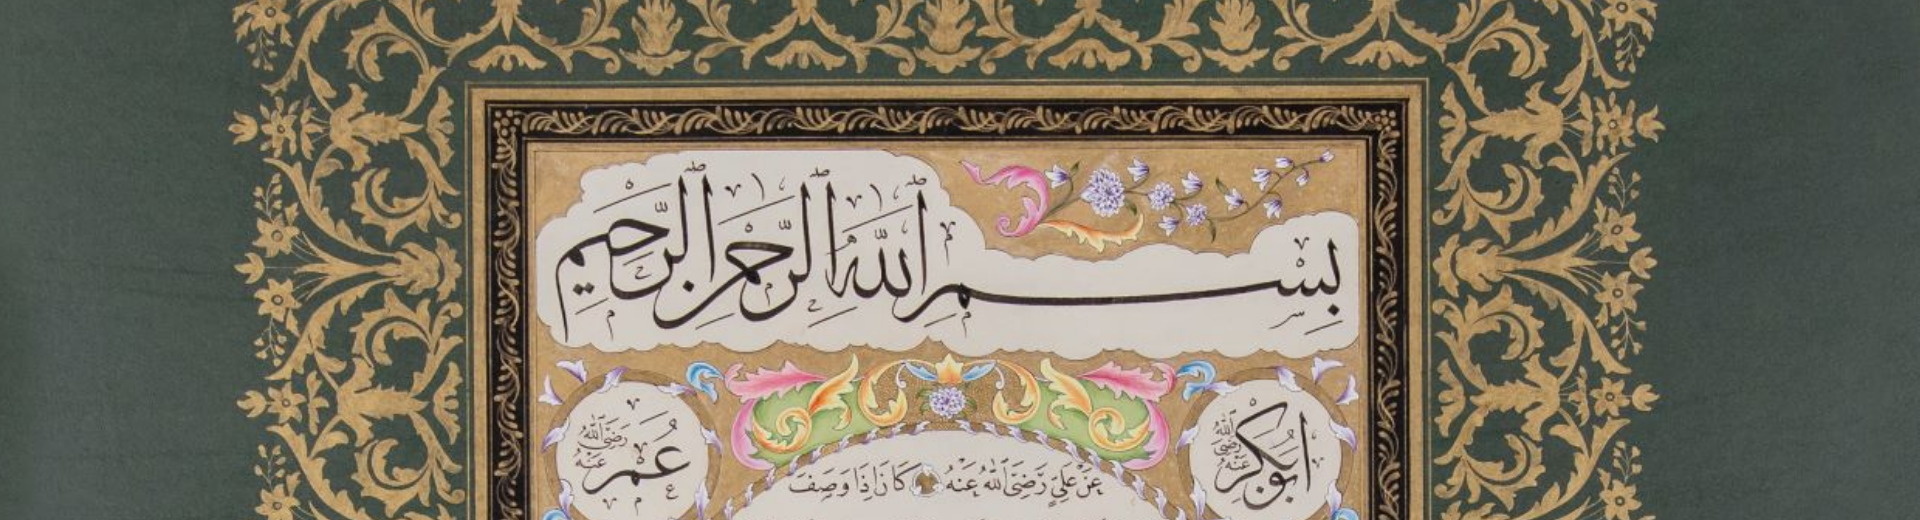 بِسْمِ اللّٰهِ الرَّحْمٰنِ الرَّحِيمِ
ابُوبَكْرٍ رَضِيَ اللّٰهُ عَنْهُ
عُمَرُ رَضِيَ اللّٰهُ عَنْهُ
عَنْ عَلِيٍّ رَضِيَ اللّٰهُ عَنْهُ كَانَ اِذَا وَصَفَ